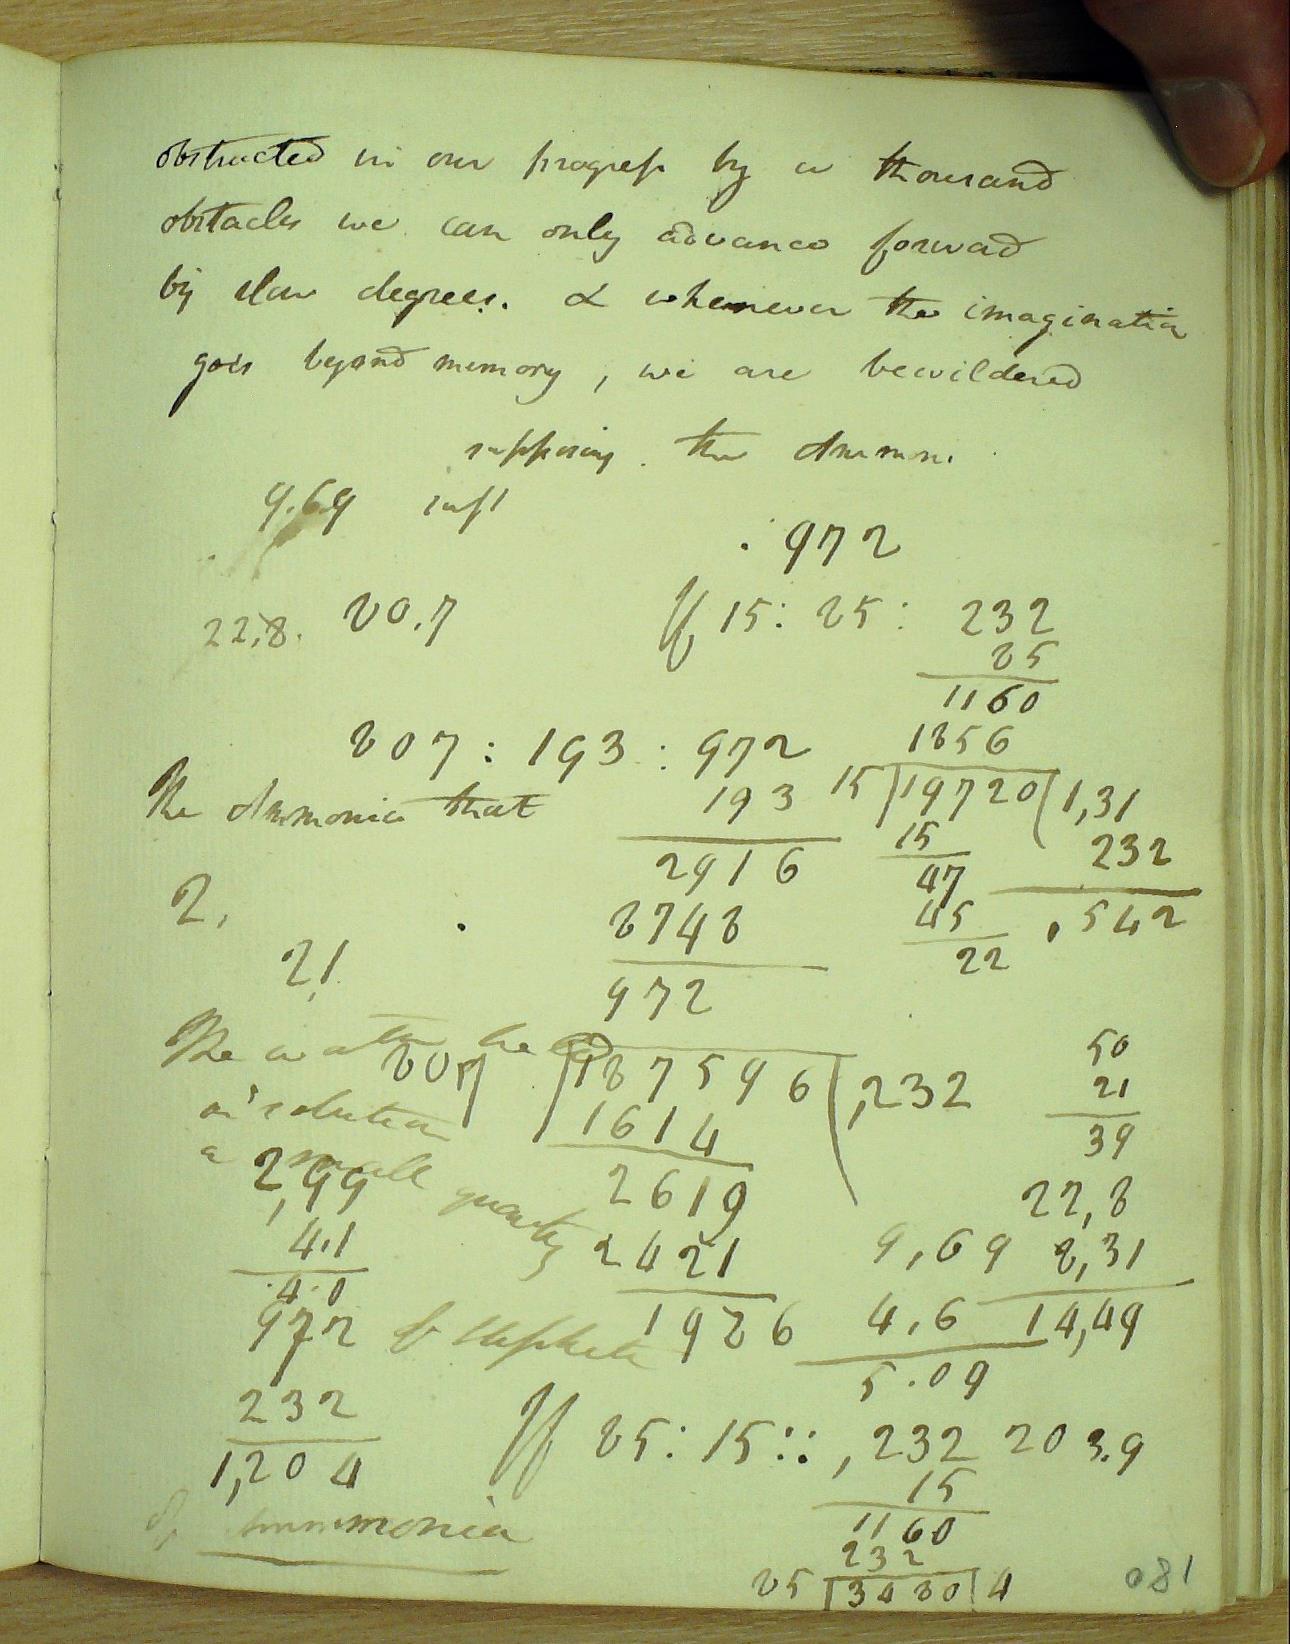 obstructed in our progress by a thousand
obstacles we can only advance forwad
by slow degrees. & whenever the imagination
goes beyond memory, we are bewildered
supposing the Ammoni
9.69
.972
22,8. 80.7
If 15: 85: 232
85
1160
1856
15 19720 1,31
15 232
47 .542
45
22
807 : 193 : 972
193
2916
8748
972
The Ammonia that
2,
21
The water be
in solution
a small quantity
807 187596 ,232
1614
2619
2421
1986
50
21
39
22,8
8,31
14,49
9,69
4,6
5.09
2,99
4.1
4.0
972
232
1,204
of Ammonia
If 85: 15::,232 203.9
15
1160
232
85 3480 4
081